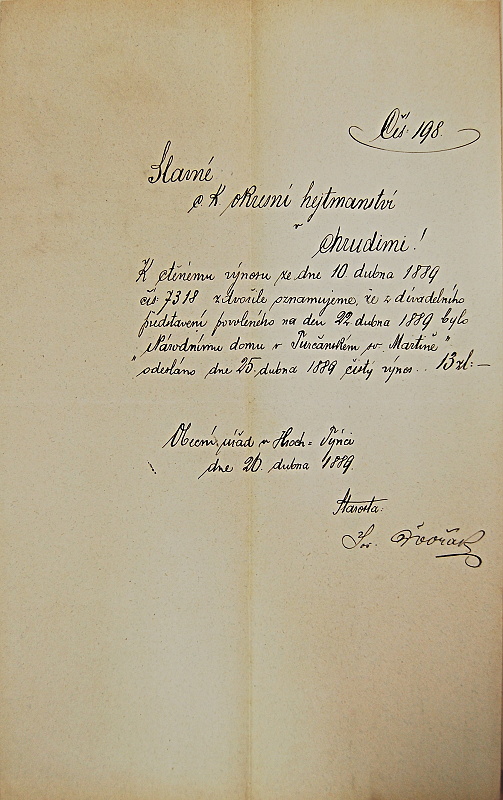 Čís. 198.
Slavné
c. K. okresní hejtmanství
v
Chrudimi!
K ctěnému výnosu ze dne 10. dubna 1889
čís. 7318 zdvořile oznamujeme, že z divadelního
představení povoleného na den 22 dubna 1889 bylo
„Národnímu domu v Turčanském sv. Martině"
odesláno dne 25. dubna 1889 čistý výnos.. 13 zl: —
Obecní úřad v Hroch= Týnci
dne 26. dubna 1889.
Starosta:
Jos. Dvořák